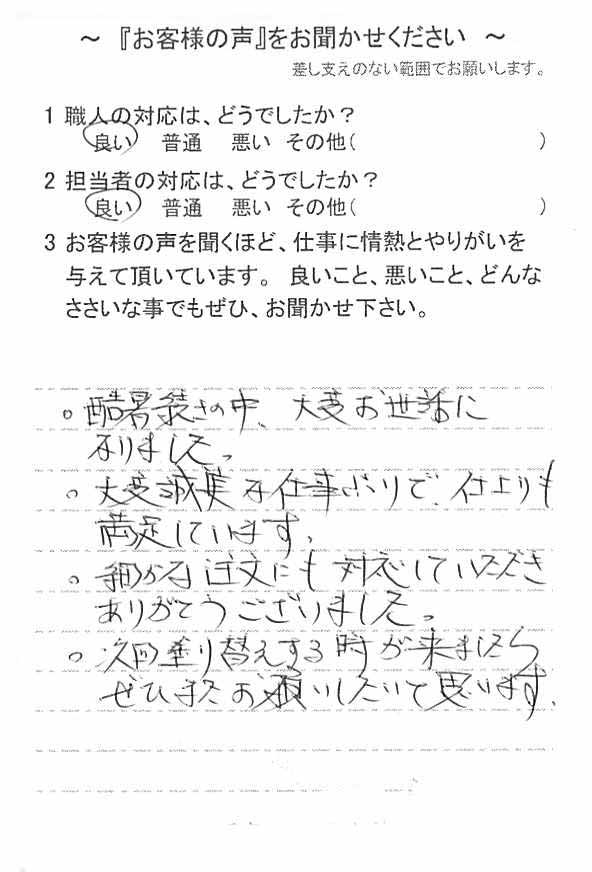 ～ 『お客様の声』をお聞かせください ～
差し支えのない範囲でお願いします。
1 職人の対応は、どうでしたか？
良い 普通 悪い その他( )
2 担当者の対応は、どうでしたか？
良い 普通 悪い その他( )
3 お客様の声を聞くほど、仕事に情熱とやりがいを
与えて頂いています。 良いこと、悪いこと、どんな
ささいな事でもぜひ、お聞かせ下さい。
○ 酷暑続きの中、大変お世話に
なりました。
○ 大変誠実な仕事ぶりで、仕上りも
満足しています。
○ 細かな注文にも対応していただき
ありがとうございました。
○ 次回塗り替えする時が来ましたら
ぜひまたお願いしたいと思います。